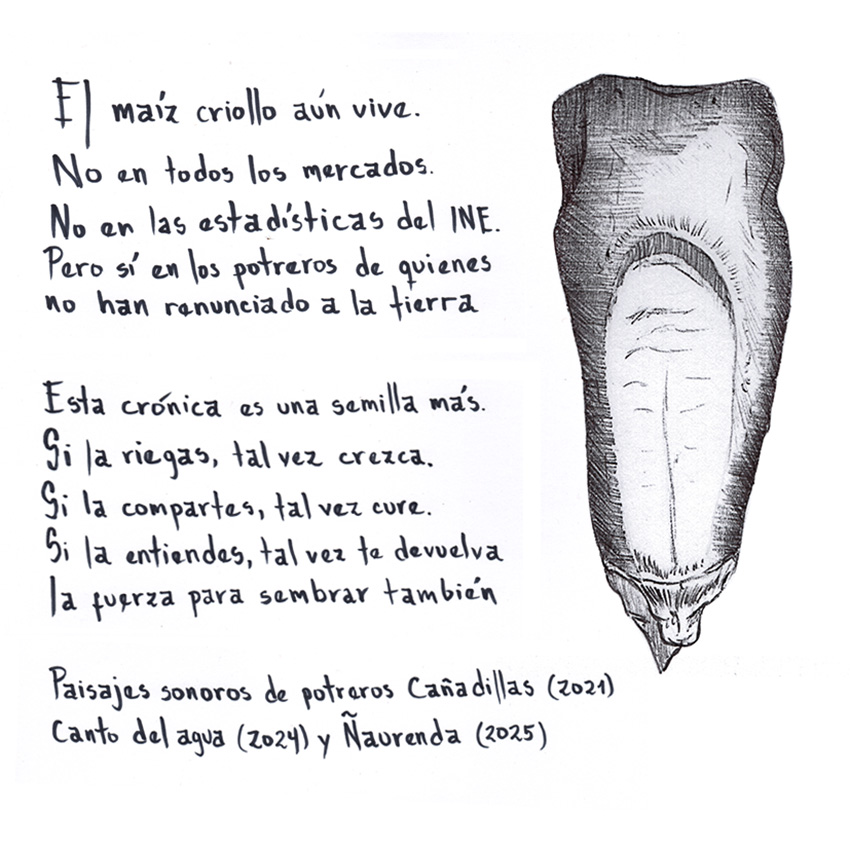 El maíz criollo aún vive.
No en todos los mercados.
No en las estadísticas del INE.
Pero sí en los potreros de quienes
no han renunciado a la tierra
Esta crónica es una semilla más.
Si la riegas, tal vez crezca.
Si la compartes, tal vez cure.
Si la entiendes, tal vez te devuelva
la fuerza para sembrar también
Paisajes sonoros de potreros Cañadillas (2021)
Canto del agua (2024) y Ñaurenda (2025)